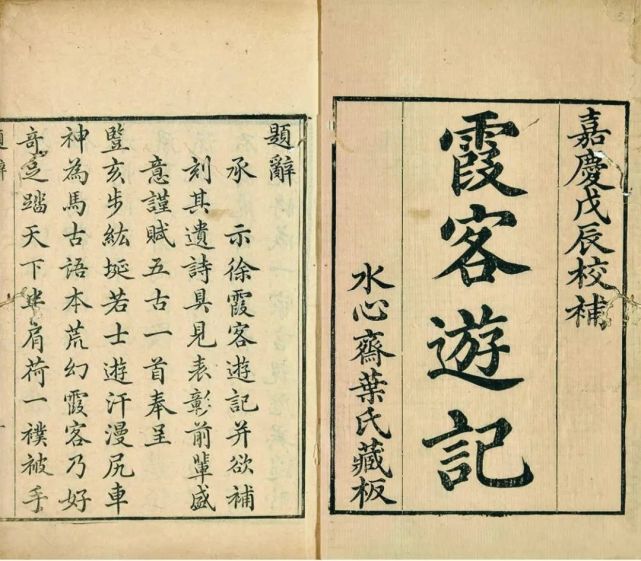 嘉慶戊辰校補
霞客遊記
水心齋葉氏藏板
題辭
承 示徐霞客遊記并欲補
刻其遺詩具見表彰前輩盛
意謹賦五古一首奉呈
豎亥步紘埏若士遊汗漫尻車
神為馬古語本荒幻霞客乃好
奇足踏天下半肩荷一襆被手